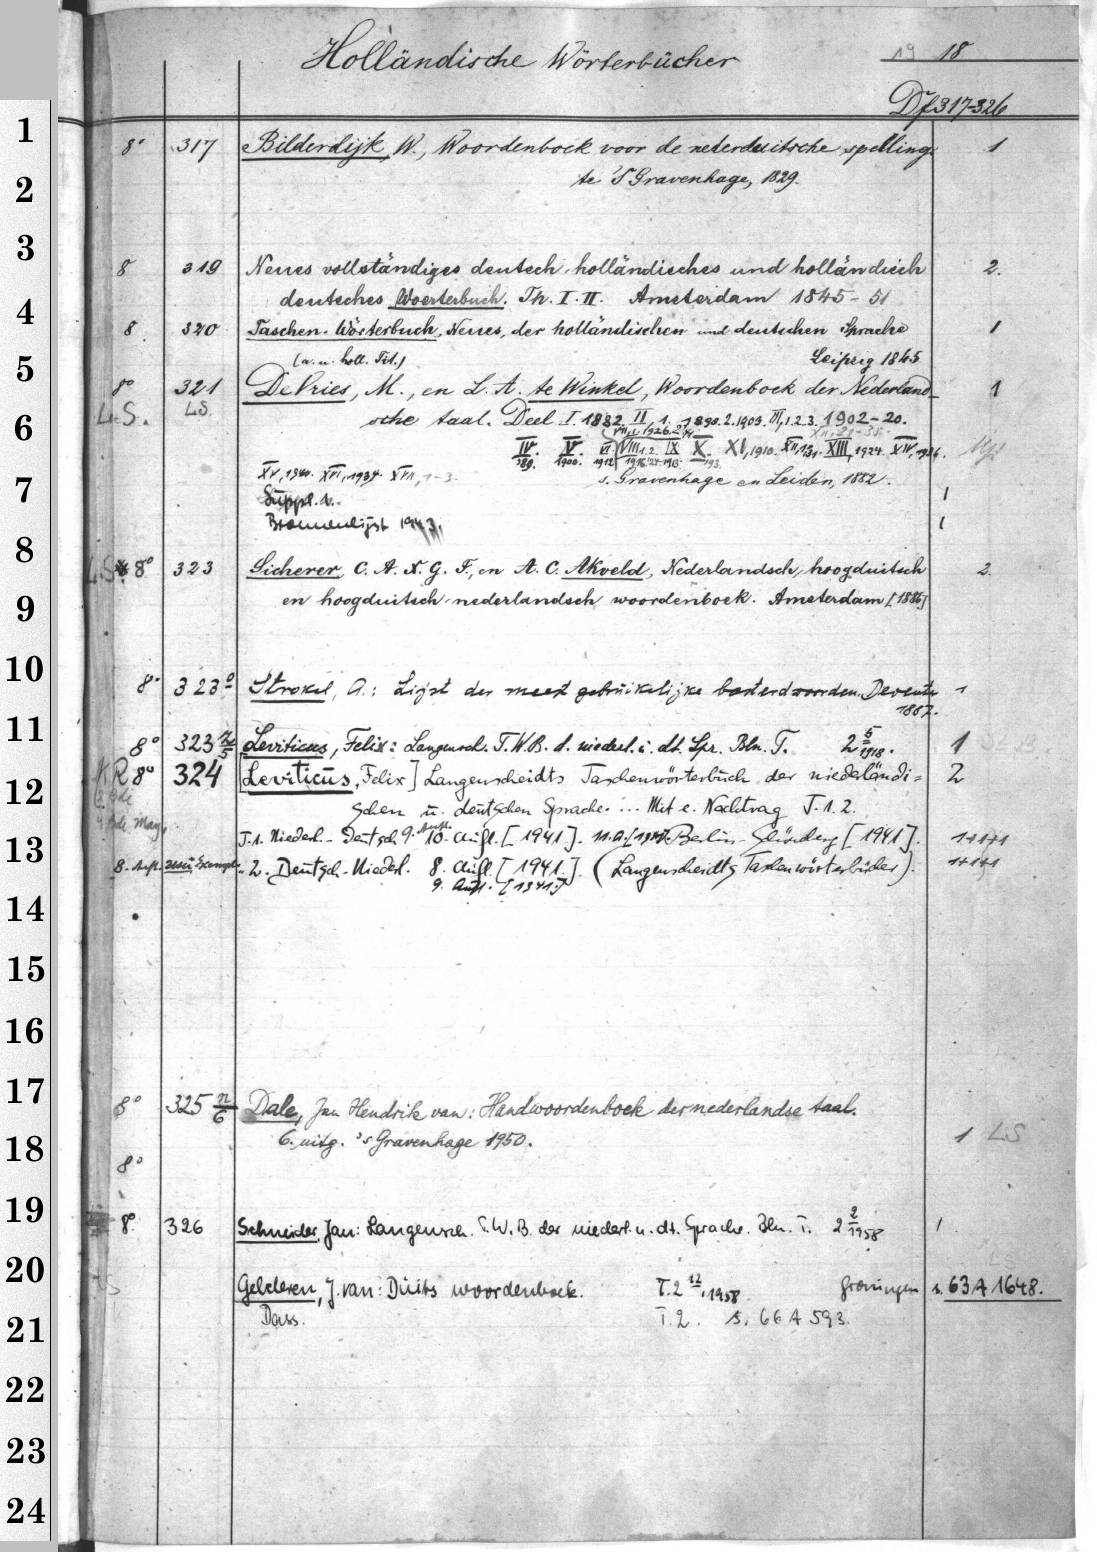 Holländische Wörterbücher 19 18
Df 317-326
1 8° 317 Bilderdijk, W., Woordenboek voor de nederduitsche spelling. 1
2 te 's Gravenhage, 1829.
3 8 319 Neues vollständiges deutsch-holländisches und holländisch 2.
4 deutsches Woerterbuch. Th. I. II. Amsterdam 1845-51
8 320 Taschen-Wörterbuch, Neues, der holländischen und deutschen Sprache 1
5 (a. u. holl. Tit.) Leipzig 1865
8° 321 De Vries, M., en L. A. te Winkel, Woordenboek der Nederland- 1
6 L.S. LS. sche taal. Deel I. 1882. II, 1. 1890. 2. 1903. III, 1. 2. 3. 1902-20.
IV. 1889. V. 1900. VI 1912 VIII 1. 2. IX 1913 X. XI, 1910. XII, 1931. XIII, 1924. XIV, 1936.
7 XV, 1940. XVI, 1934. XVII, 1-3. s. Gravenhage en Leiden, 1882.
Suppl. 1. 1
Bronnenlijst 1943. 1
8 L.S. 8° 323 Sicherer, C. A. X. G. F., en A. C. Akveld, Nederlandsch, hoogduitsch 2.
9 en hoogduitsch-nederlandsch woordenboek. Amsterdam [1886]
10 8° 323 Strokel, A.: Lijst der meest gebruikelijke basterdwoorden. Deventer 1
1887.
11 8° 323 Leviticus, Felix: Langensch. T.W.B. d. niederl. u. dt. Spr. Bln. T. 2 5 1918. 1
K R 8° 324 [Leviticus, Felix] Langenscheidts Taschenwörterbuch der niederländi= 2
12 schen u. deutschen Sprache. ... Mit e. Nachtrag T. 1. 2.
13 T. 1. Niederl.-Deutsch 9. Aufl. 10. Aufl. [1941]. Berlin-Schöneberg [1941]. 1+1+1
8. Aufl. 2. Deutsch-Niederl. 8. Aufl. [1941.] (Langenscheidts Taschenwörterbücher). 1+1+1
9. Aufl. [1941]
14
15
16
17 8° 325 n/6 Dale, Jan Hendrik van: Handwoordenboek der nederlandse taal.
18 6. uitg. 's Gravenhage 1950. 1 LS
8°
19 8° 326 Schneider, Jan: Langensch. T.W.B. der niederl. u. dt. Sprache. Bln. T. 2 2 1958 1
20 Gelderen, J. van: Duits woordenboek. T. 2 12. 1958 Groningen s. 63 A 1648.
21 Dass. T. 2. s. 66 A 593.
22
23
24